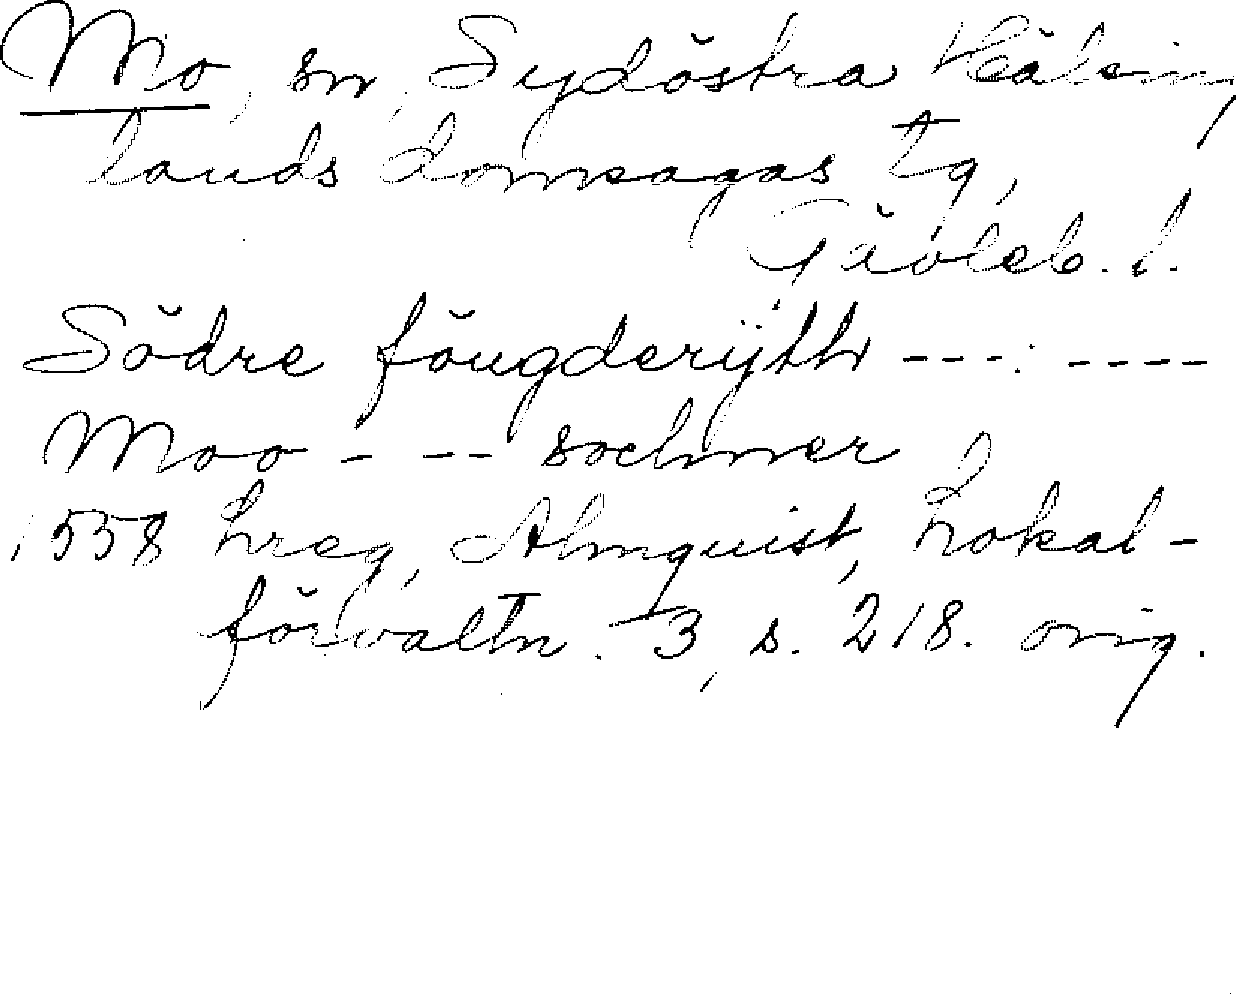 Mo, sn, Sydöstra Hälsing
lands domsagas tg,
Gävleb. l.
Södre föugderÿth ---: ----
Moo - -- sochner
1558 Lreg, Almquist, Lokal-
förvaltn. 3, s. 218. orig.